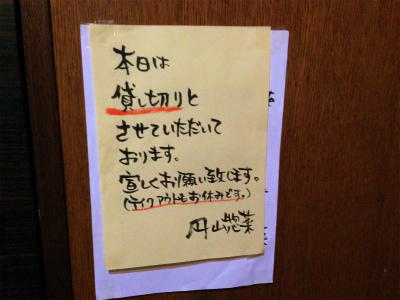 本日は
貸し切りと
させていただいて
おります。
宜しくお願い致します。
(テイクアウトもお休みです。)
円山惣菜